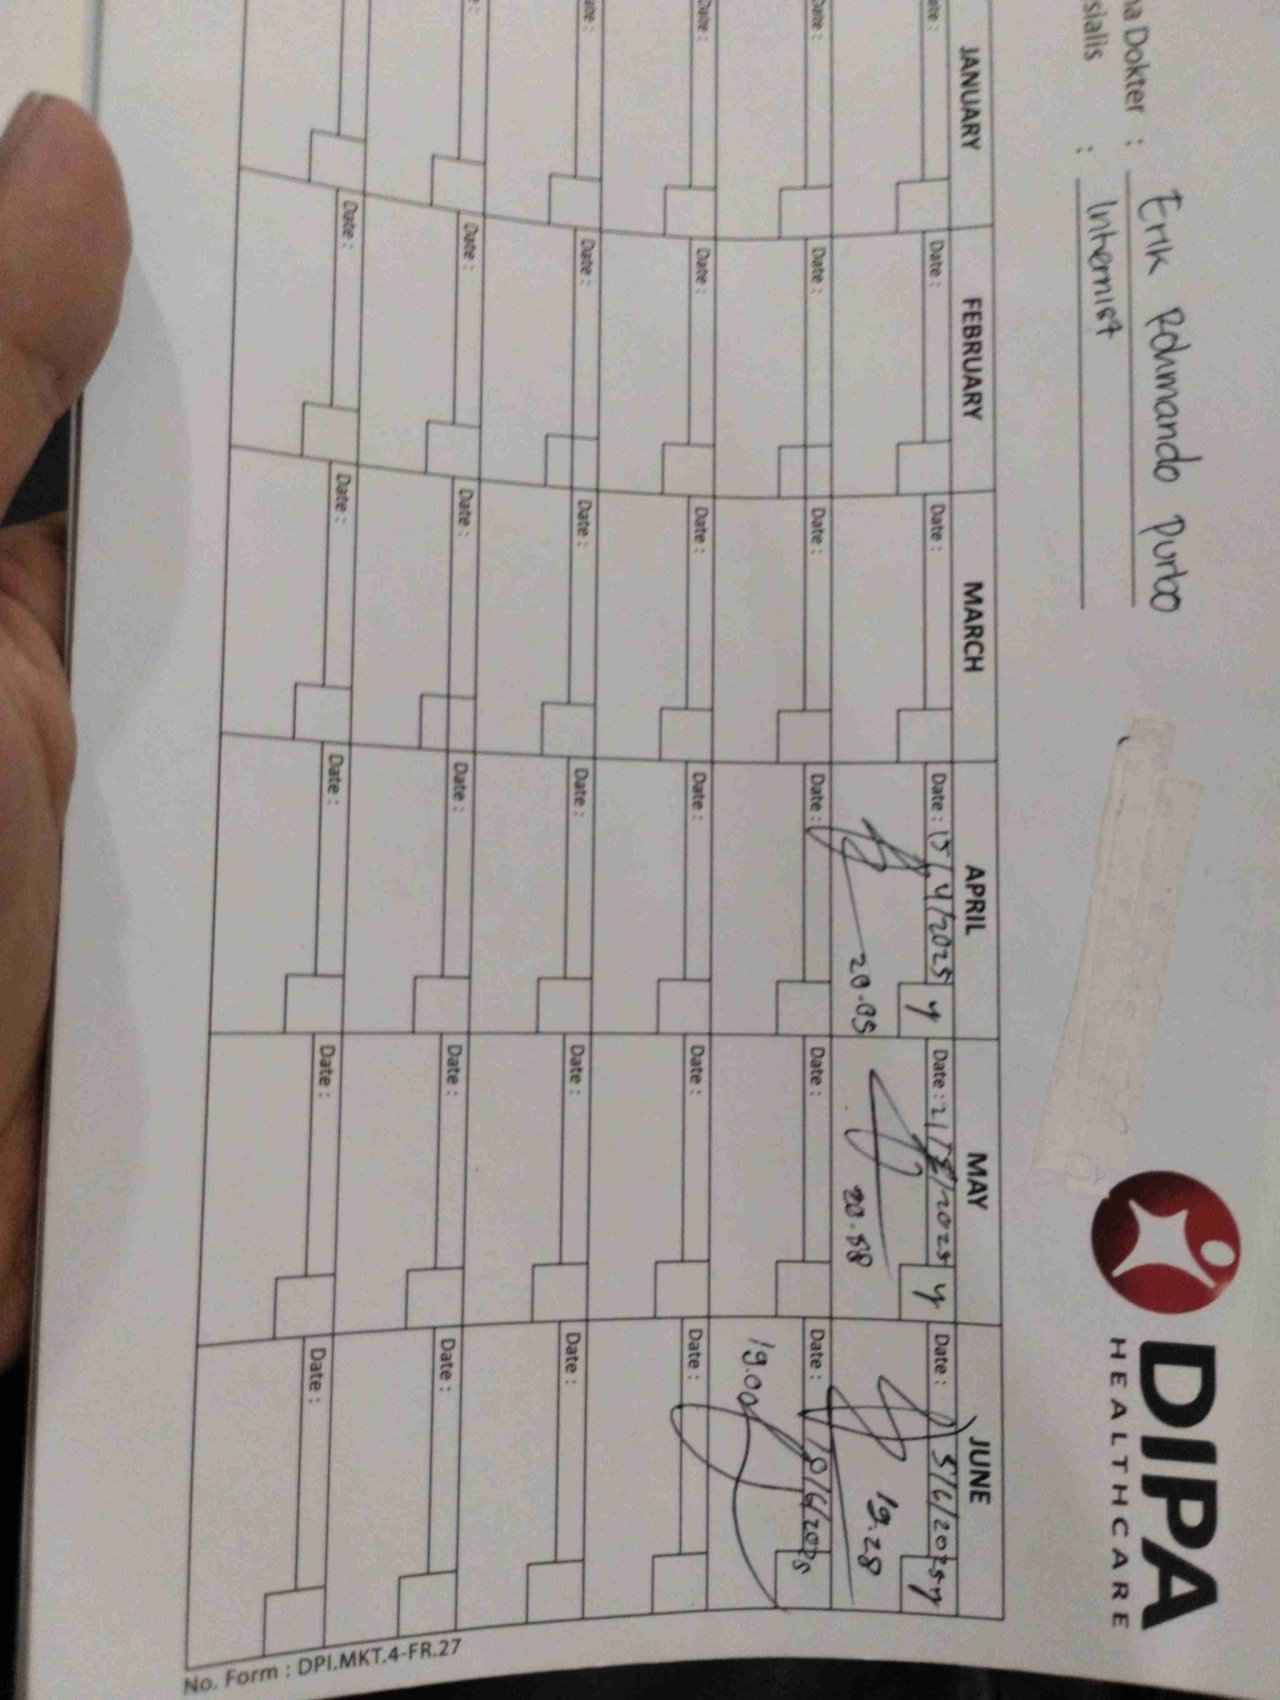 na Dokter : Erik Rohmando Purbo
sialis : Internist
DIPA
HEALTHCARE
JANUARY FEBRUARY MARCH APRIL MAY JUNE
ate : Date : Date : Date : 15/4/2025 y Date : 21/5/2025 y Date : 5/6/2025 y
20.05 20.58 19.28
Date : Date : Date : Date : Date : Date : 18/6/2025
19.00
Date : Date : Date : Date : Date : Date :
ate : Date : Date : Date : Date : Date :
e : Date : Date : Date : Date : Date :
Date : Date : Date : Date : Date :
No. Form : DPI.MKT.4-FR.27